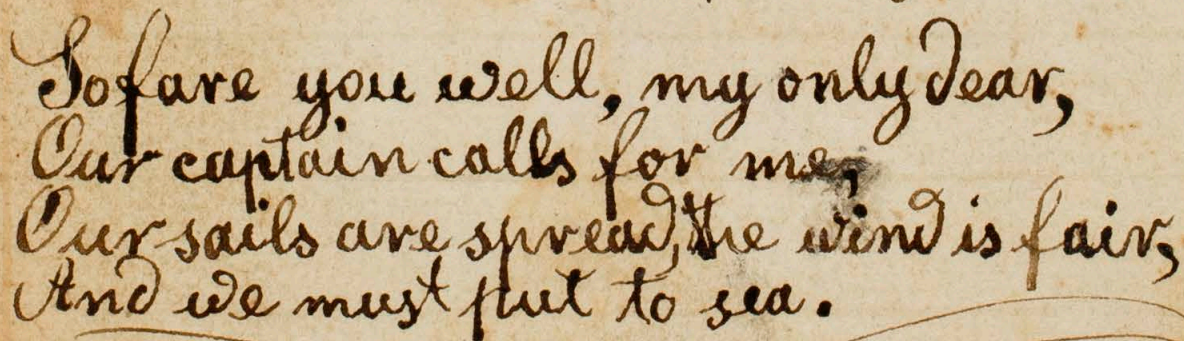 So fare you well, my only dear,
Our captain calls for me,
Our sails are spread, the wind is fair,
And we must put to sea.